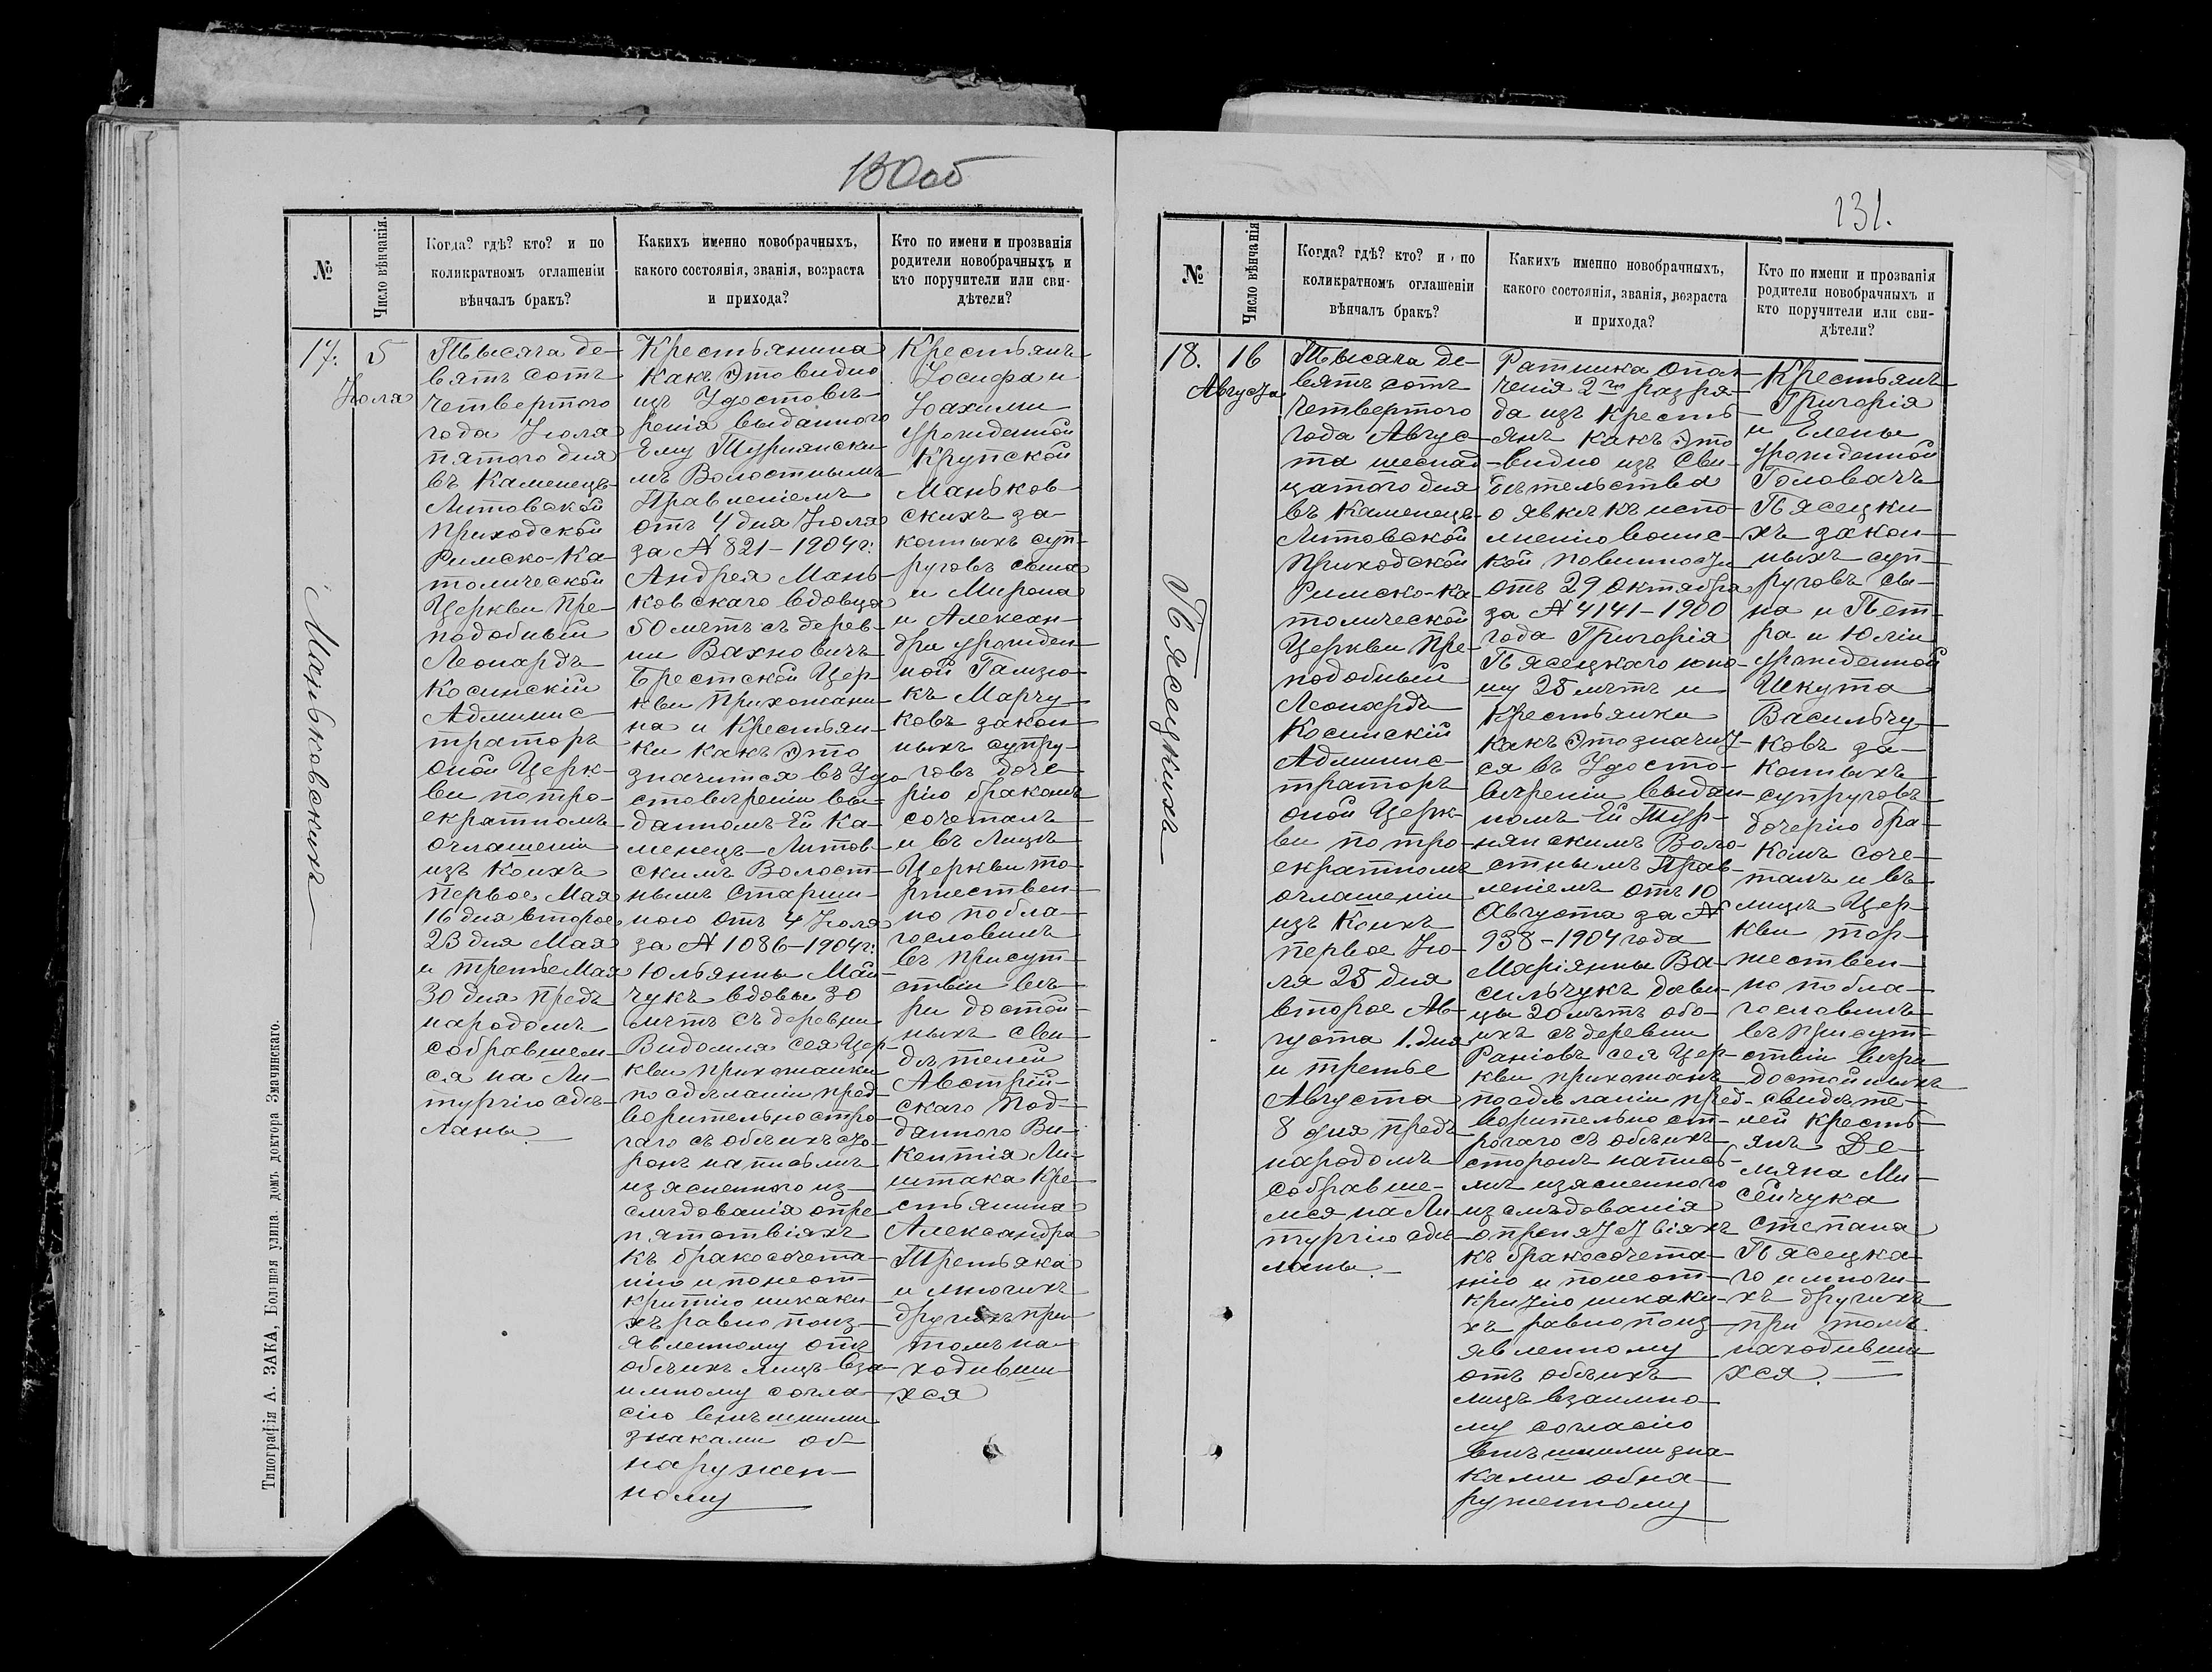 130об
№
Число вѣнчанія.
Когда? гдѣ? кто? и по
коликратномъ оглашеніи
вѣнчалъ бракъ?
Какихъ именно новобрачныхъ,
какого состоянія, званія, возраста
и прихода?
Кто по имени и прозванія
родители новобрачныхъ и
кто поручители или сви-
дѣтели?
17.
5
Іюля
Маньковскихъ
Тысяча де-
вять сотъ
четвертого
года Іюля
пятого дня
въ Каменецъ
Литовской
Приходской
Римско-Ка-
толической
Церкви Пре-
подобный
Леонардъ
Косинскій
Админис-
траторъ
оной Церк-
ви по тро-
екратномъ
оглашеніи
изъ коихъ
первое Мая
16 дня второе
23 дня Мая
и третье Мая
30 дня предъ
народомъ
собравшем-
ся на Ли-
тургію сдѣ-
ланы
Крестьянина
какъ это видно
изъ Удостовѣ-
ренія выданного
Ему Турнянски-
мъ Волостнымъ
Правленіемъ
отъ 4 дня Іюля
за № 821-1904 г.
Андрея Мань-
ковскаго вдовца
50 лѣтъ съ дерев-
ни Вахновичъ
Брестской Цер-
кви Прихожани-
на и Крестьян-
ки какъ это
значится въ Удо-
стовѣреніи вы-
данномъ Ей Ка-
менецъ-Литов-
скимъ Волост-
нымъ Старши-
ною отъ 4 Іюля
за № 1086-1904 г.
Юльянны Май-
чукъ вдовы 30
лѣтъ съ деревни
Видомля сея Цер-
кви прихожанки
по сдѣланіи пред-
ворительно стро-
гаго съ обѣихъ сто-
ронъ на письмѣ
изясненного из-
слѣдованія о пре-
пятствіяхъ
къ бракосочета-
нію и понеот-
критію никаки-
хъ равно по из-
явленному отъ
обѣихъ лицъ вза-
имному согла-
сію внѣшними
знаками об-
наружен-
ному
Крестьянъ
Іосифа и
Іоахими
урожденной
Крупской
Маньков-
скихъ за-
конныхъ суп-
руговъ сына
и Мирона
и Алексан-
дри урожден-
ной Гамзю-
къ Марчу-
ковъ закон-
ныхъ супру-
говъ доче-
рію бракомъ
сочеталъ
и въ Лицѣ
Церкви то-
ржествен-
но побла-
гословилъ
въ присут-
ствіи вѣ-
ри достой-
ныхъ сви-
дѣтелей
Австрій-
скаго под-
данного Ви-
кентія Ли-
штака Кре-
стьянина
Александра
Третьяка
и многихъ
другихъ при
томъ на-
ходивши-
хся
Типографія А. ЗАКА, Большая улица. домъ доктора Змачинскаго.
131.
№
Число вѣнчанія
Когда? гдѣ? кто? и по
коликратномъ оглашеніи
вѣнчалъ бракъ?
Какихъ именно новобрачныхъ,
какого состоянія, званія, возраста
и прихода?
Кто по имени и прозванія
родители новобрачныхъ и
кто поручители или сви-
дѣтели?
18.
16
Августа
Пясецкихъ
Тысяча де-
вять сотъ
четвертого
года Авгус-
та шеснад-
цатого дня
въ Каменецъ-
Литовской
Приходской
Римско-Ка-
толической
Церкви Пре-
подобный
Леонардъ
Косинскій
Админис-
траторъ
оной Церк-
ви по тро-
екратномъ
оглашеніи
изъ коихъ
первое Ію-
ля 25 дня
второе Ав-
густа 1. дня
и третье
Августа
8 дня предъ
народомъ
собравше-
мся на Ли-
тургію сдѣ-
ланы.
Ратника опол-
ченія 2го разря-
да изъ кресть-
янъ какъ это
видно изъ Сви-
дѣтельства
о явкѣ къ испо-
лненію воинс-
кой повинности
отъ 29 Октября
за № 4141-1900
года Григорія
Пясецкаго юно-
шу 25 лѣтъ и
Крестьянки
какъ это значит-
ся въ Удосто-
вѣреніи выдан-
номъ Ей Тур-
нянскимъ Воло-
стнымъ Прав-
леніемъ отъ 10
Августа за №
938-1904 года
Маріянны Ва-
сильчукъ деви-
цы 20 лѣтъ обо-
ихъ съ деревни
Раніовъ сея Цер-
кви прихожанъ
по сдѣланіи пред-
ворительно ст-
рогаго съ обѣихъ
сторонъ на пись-
мѣ изясненного
изслѣдованія
о препятствіяхъ
къ бракосочета-
нію и понеот-
критію никаки-
хъ равно по из-
явленному
отъ обѣихъ
лицъ взаимно-
му согласію
внѣшними зна-
ками обна-
руженному
Крестьянъ
Григорія
и Елены
урожденной
Головачъ
Пясецки-
хъ закон-
ныхъ суп-
руговъ сы-
на и Пет-
ра и Юліи
урожденной
Шкута
Васильчу-
ковъ за-
конныхъ
супруговъ
дочерію бра-
комъ соче-
талъ и въ
лицѣ Цер-
кви тор-
жествен-
но побла-
гословилъ
въ присут-
ствіи вѣри
достойныхъ
свидѣте-
лей Кресть-
янъ Де-
мяна Ми-
сейчука
Степана
Пясецка-
го и многи-
хъ другихъ
при томъ
находивши-
хся.